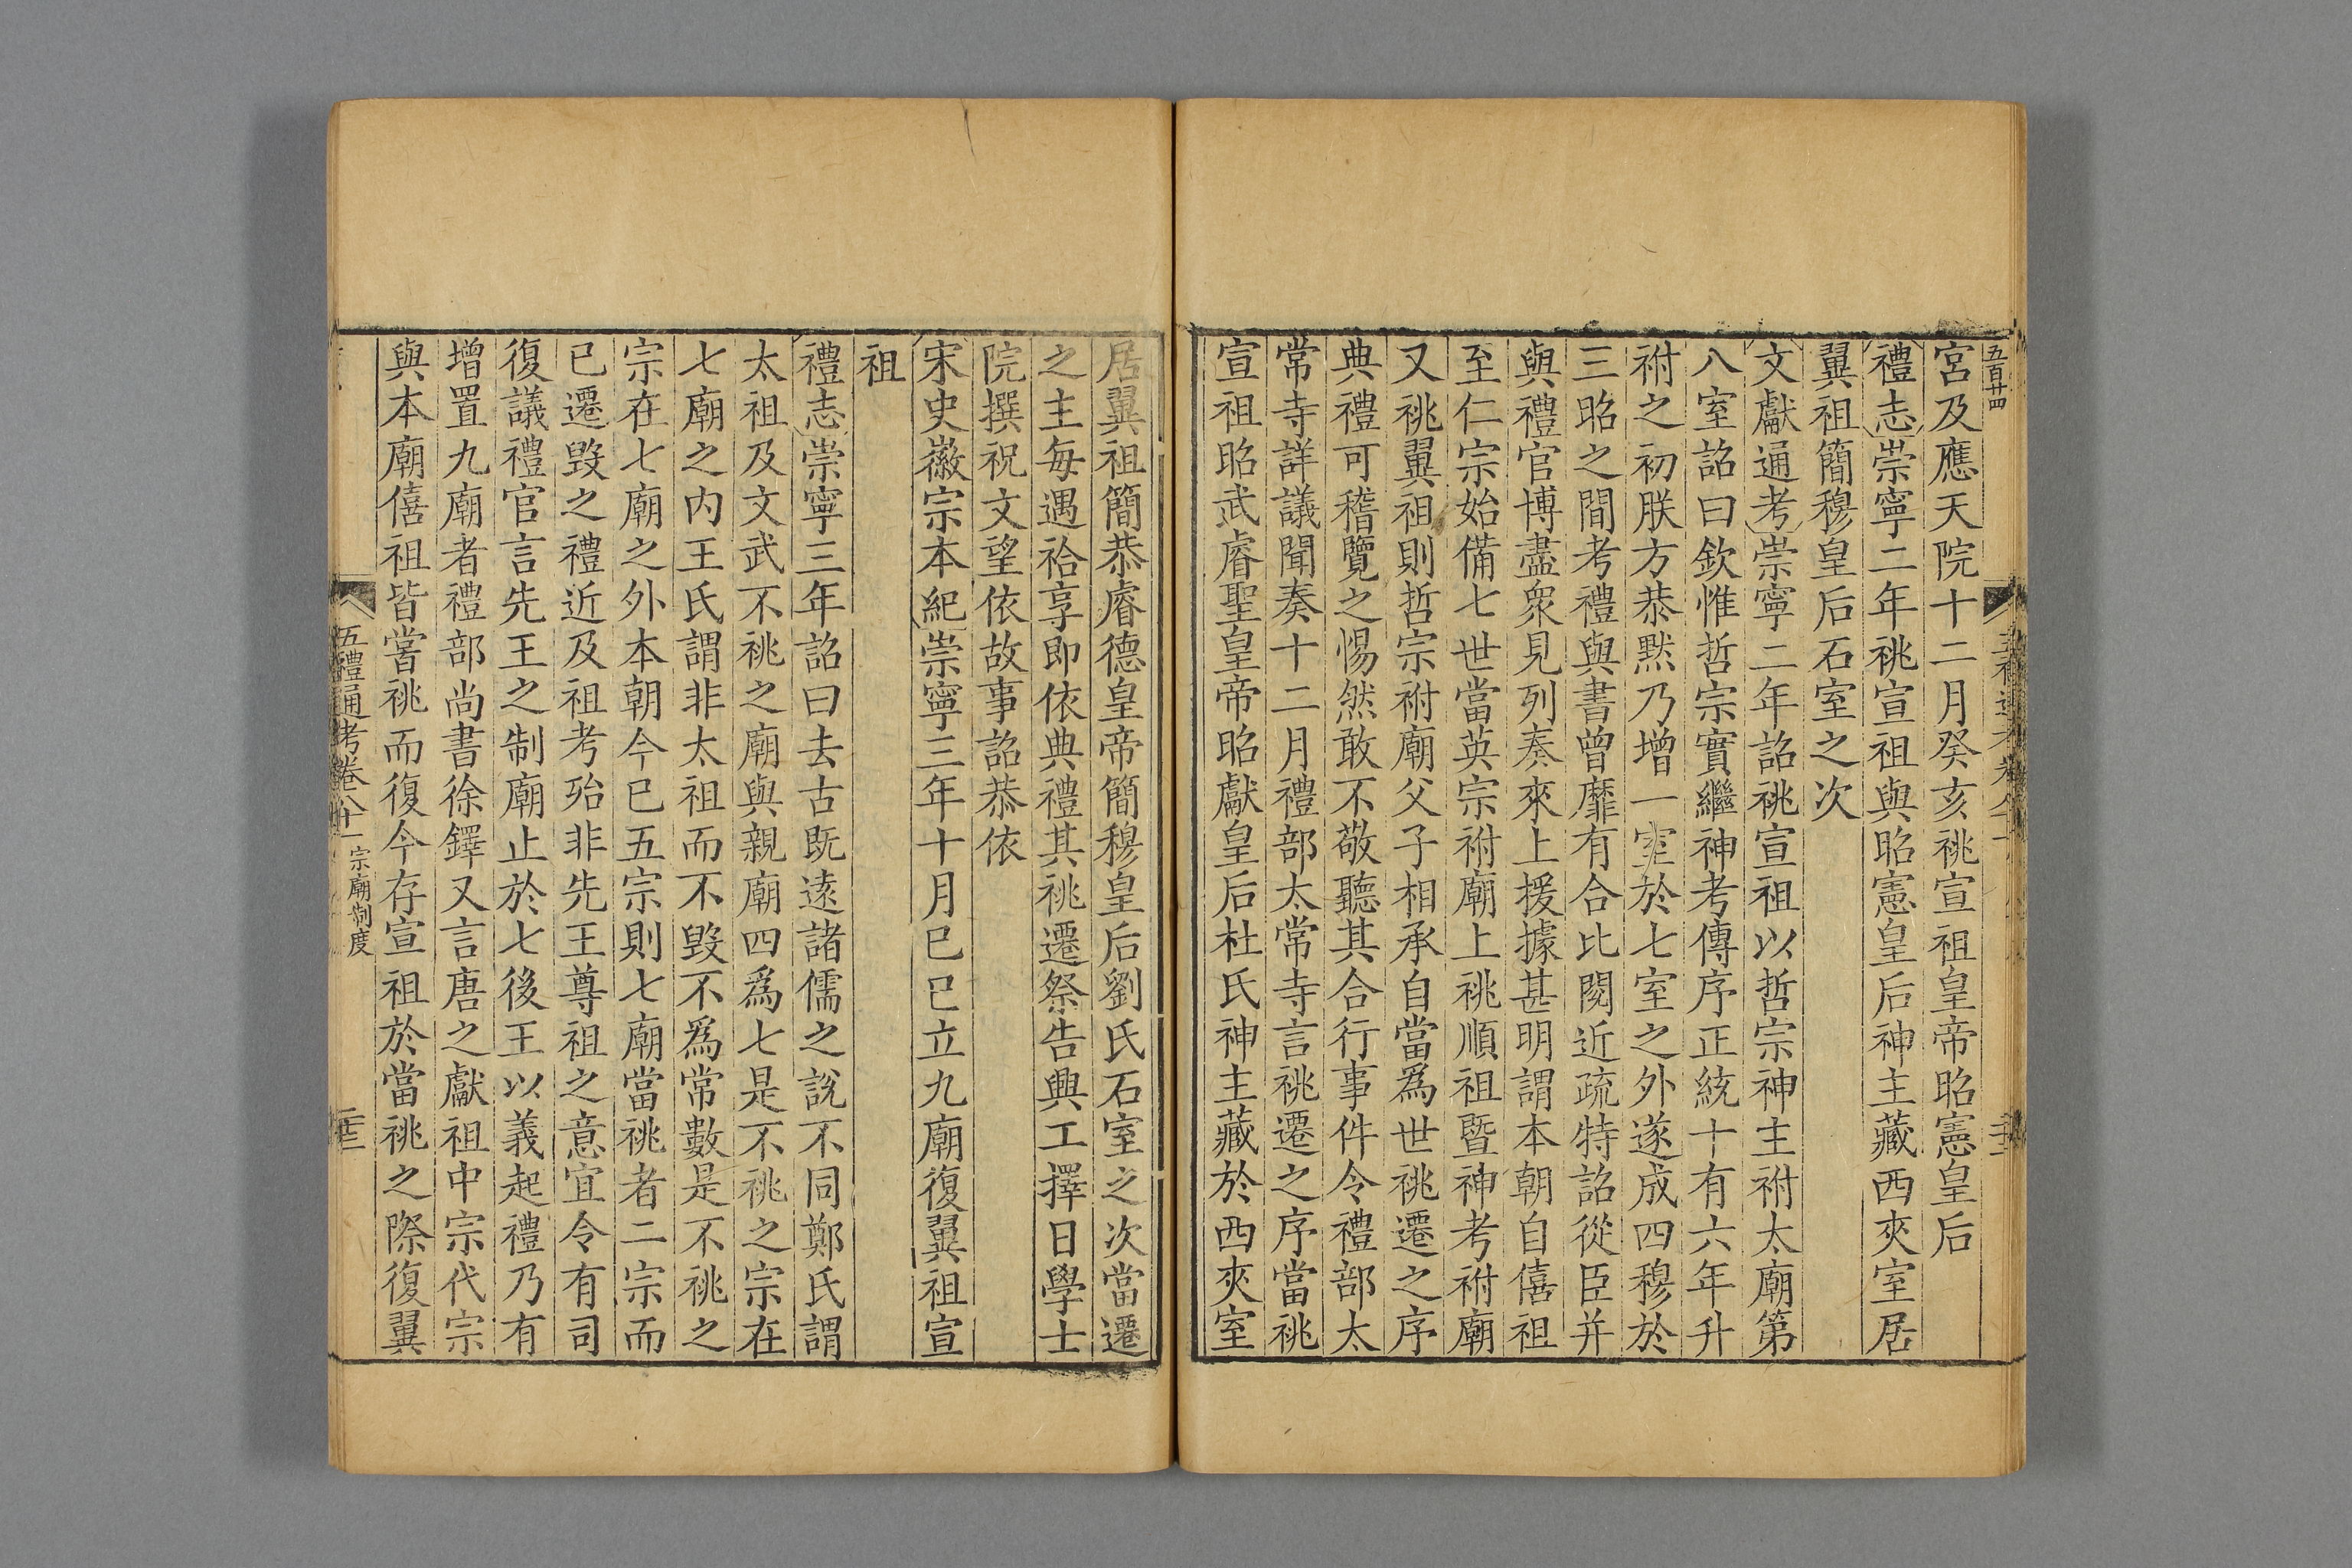 五百廿四
宮及應天院十二月癸亥祧宣祖皇帝昭憲皇后
禮志崇寧二年祧宣祖與昭憲皇后神主藏西夾室居
翼祖簡穆皇后石室之次
文獻通考崇寧二年詔祧宣祖以哲宗神主祔太廟第
八室詔曰欽惟哲宗實繼神考傳序正統十有六年升
祔之初朕方恭默乃增一室於七室之外遂成四穆於
三昭之間考禮與書曾靡有合比閱近疏特詔從臣并
與禮官博盡衆見列奏來上援據甚明謂本朝自僖祖
至仁宗始備七世當英宗祔廟上祧順祖暨神考祔廟
又祧翼祖則哲宗祔廟父子相承自當爲世祧遷之序
典禮可稽覽之惕然敢不敬聽其合行事件令禮部太
常寺詳議聞奏十二月禮部太常寺言祧遷之序當祧
宣祖昭武睿聖皇帝昭獻皇后杜氏神主藏於西夾室
居翼祖簡恭睿德皇帝簡穆皇后劉氏石室之次當遷
之主每遇祫享即依典禮其祧遷祭告興工擇日學士
院撰祝文望依故事詔恭依
宋史徽宗本紀崇寧三年十月已巳立九廟復翼祖宣
祖
禮志崇寧三年詔曰去古既遠諸儒之說不同鄭氏謂
太祖及文武不祧之廟與親廟四爲七是不祧之宗在
七廟之内王氏謂非太祖而不毀不爲常數是不祧之
宗在七廟之外本朝今已五宗則七廟當祧者二宗而
已遷毀之禮近及祖考殆非先王尊祖之意宜令有司
復議禮官言先王之制廟止於七後王以義起禮乃有
增置九廟者禮部尚書徐鐸又言唐之獻祖中宗代宗
與本廟僖祖皆嘗祧而復今存宣祖於當祧之際復翼
五禮通考卷八十一 宗廟制度